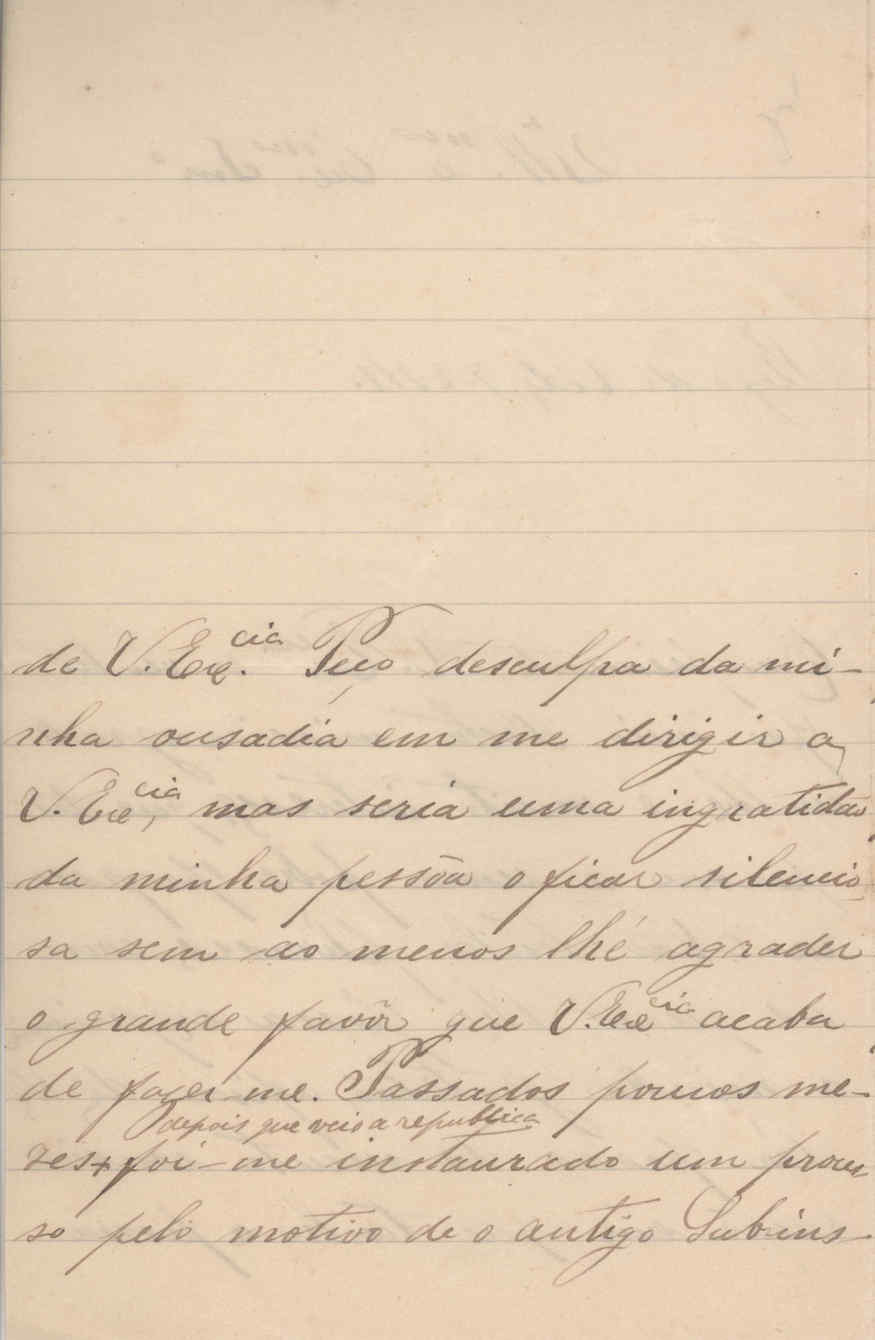 de V. Exª.cia Peço desculpa da mi-
nha ousadia em me dirigir a
V. Exª.cia, mas seria uma ingratidão
da minha pessôa o ficar silencio-
sa sem ao menos lhé agrader
o grande favôr que V. Exª.cia acaba
de fazer-me. Passados poucos me-
depois que veio a republica
zes+ foi-me instaurado um proces
so pelo motivo de o antigo Sub-ins-